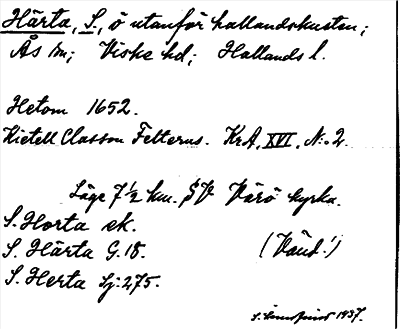 Härta, S., ö utanför hallandskusten;
Ås sn; Viske hd; Hallands l.
Hetom 1652.
Kietell Classon Felterus. KrA, XVI, N:o 2.
Läge 7 1/2 km. SV Värö kyrka.
S. Horta ek.
S. Härta G.18. (Vänd!)
S. Herta Sj: 275.
1937.